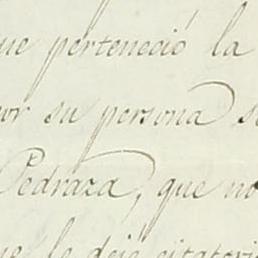 ue perteneció la
or su persona se
Pedraza, que no
ue le deje citatori